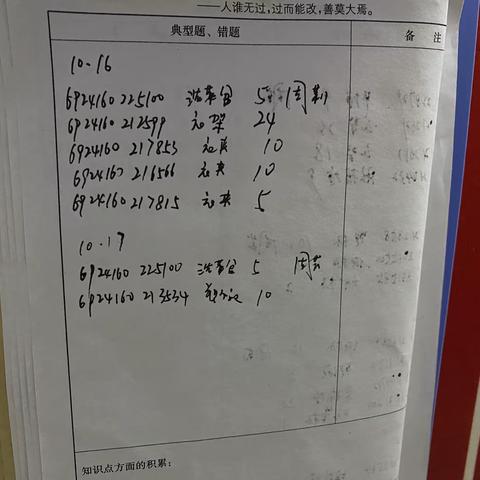 ——人谁无过,过而能改,善莫大焉。
典型题、错题 备 注
10.16
6924160 225100 洗菜盆 5
6924160 212599 衣架 24
6924160 217853 衣夹 10
6924160 216566 衣夹 10
6924160 217815 衣夹 5
10.17
6924160 225100 洗菜盆 5
6924160 213534 10
知识点方面的积累: